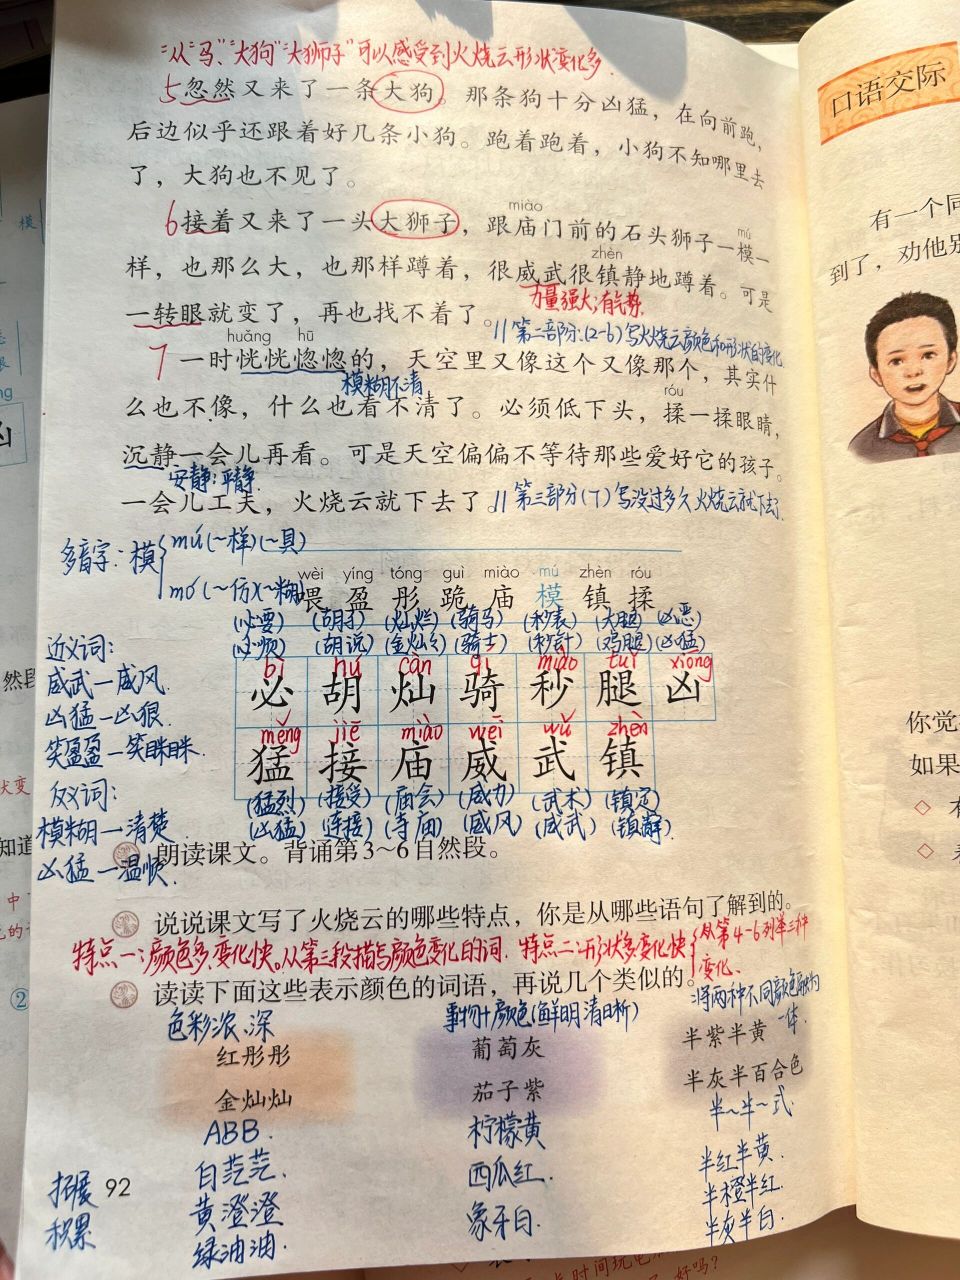 “从“马”、“大狗”“大狮子”可以感受到火烧云形状变化多.
5忽然又来了一条大狗。那条狗十分凶猛，在向前跑，
后边似乎还跟着好几条小狗。跑着跑着，小狗不知哪里去
了，大狗也不见了。
miào
mú
6接着又来了一头大狮子，跟庙门前的石头狮子一模一
zhèn
样，也那么大，也那样蹲着，很威武很镇静地蹲着。可是
力量强大;有气势.
一转眼就变了，再也找不着了。
//第二部分:(2-6)写火烧云颜色和形状的变化
huǎng hū
7一时恍恍惚惚的，天空里又像这个又像那个，其实什
模糊不清
róu
么也不像，什么也看不清了。必须低下头，揉一揉眼睛，
沉静一会儿再看。可是天空偏偏不等待那些爱好它的孩子。
安静;平静
一会儿工夫，火烧云就下去了。//第三部分(7)写没过多久火烧云就下去了.
多音字:模
mú(~样)(~具)
mó(~仿)(~糊)
wèi yíng tóng guì miào mú zhèn róu
喂 盈 彤 跪 庙 模 镇 揉
(必要) (胡子) (灿烂) (骑马) (秒表) (大腿) (凶恶)
(必须) (胡说) (金灿灿) (骑士) (秒针) (鸡腿) (凶猛)
bì hú càn qí miǎo tuǐ xiōng
必 胡 灿 骑 秒 腿 凶
měng jiē miào wēi wǔ zhèn
猛 接 庙 威 武 镇
(猛烈) (接受) (庙会) (威力) (武术) (镇定)
(凶猛) (连接) (寺庙) (威风) (威武) (镇静)
近义词:
威武—威风.
凶猛—凶狠.
笑盈盈—笑眯眯.
反义词:
模糊—清楚
凶猛—温顺.
朗读课文。背诵第3~6自然段。
说说课文写了火烧云的哪些特点，你是从哪些语句了解到的。
特点一:颜色多,变化快。从第三段描写颜色变化的词. 特点二:形状多,变化快
从第4-6列举三种
变化.
读读下面这些表示颜色的词语，再说几个类似的。
色彩浓、深
事物+颜色(鲜明清晰)
:将两种不同颜色融为
一体.
红彤彤
葡萄灰
半紫半黄
金灿灿
茄子紫
半灰半百合色
ABB.
柠檬黄
半~半~式
白茫茫.
西瓜红.
半红半黄.
黄澄澄
象牙白.
半橙半红.
绿油油.
半灰半白.
拓展
积累
92
口语交际
有一个同
到了，劝他别
你觉
如果